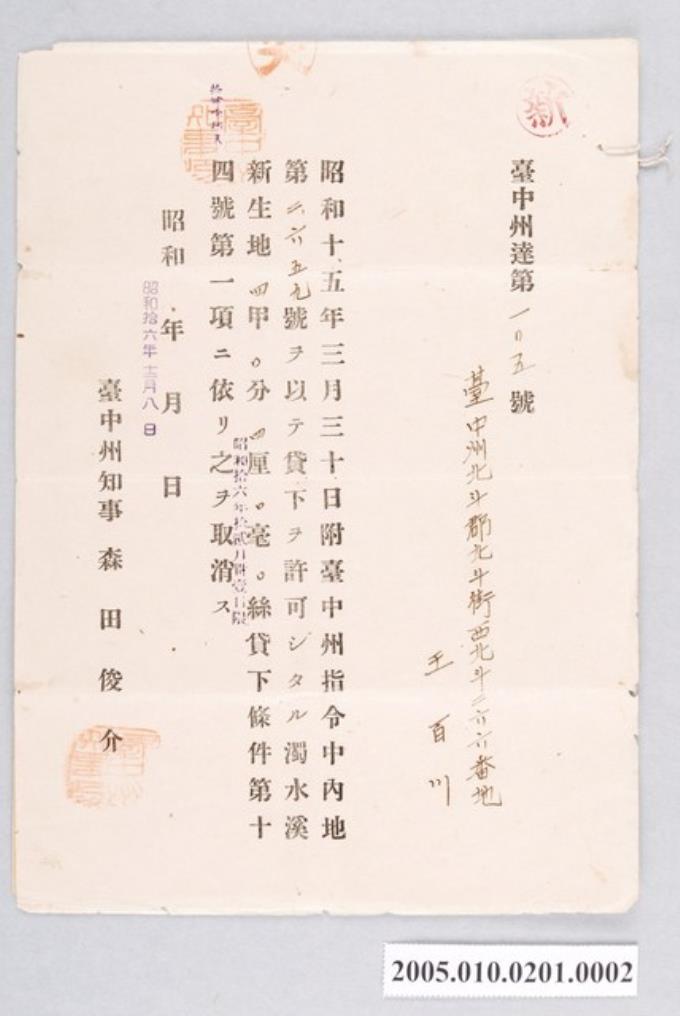 新
臺中州達第一〇五號
臺中州北斗郡北斗街西北斗二六六番地
王百川
昭和十五年三月三十日附臺中州指令中內地
第二六五九號ヲ以テ貸下ヲ許可シタル濁水溪
新生地四甲〇分四厘〇毫〇絲貸下條件第十
昭和拾六年拾貳月卅壹日限
四號第一項ニ依リ之ヲ取消ス
昭和 年 月 日
昭和拾六年十二月八日
臺中州知事 森田俊介
2005.010.0201.0002